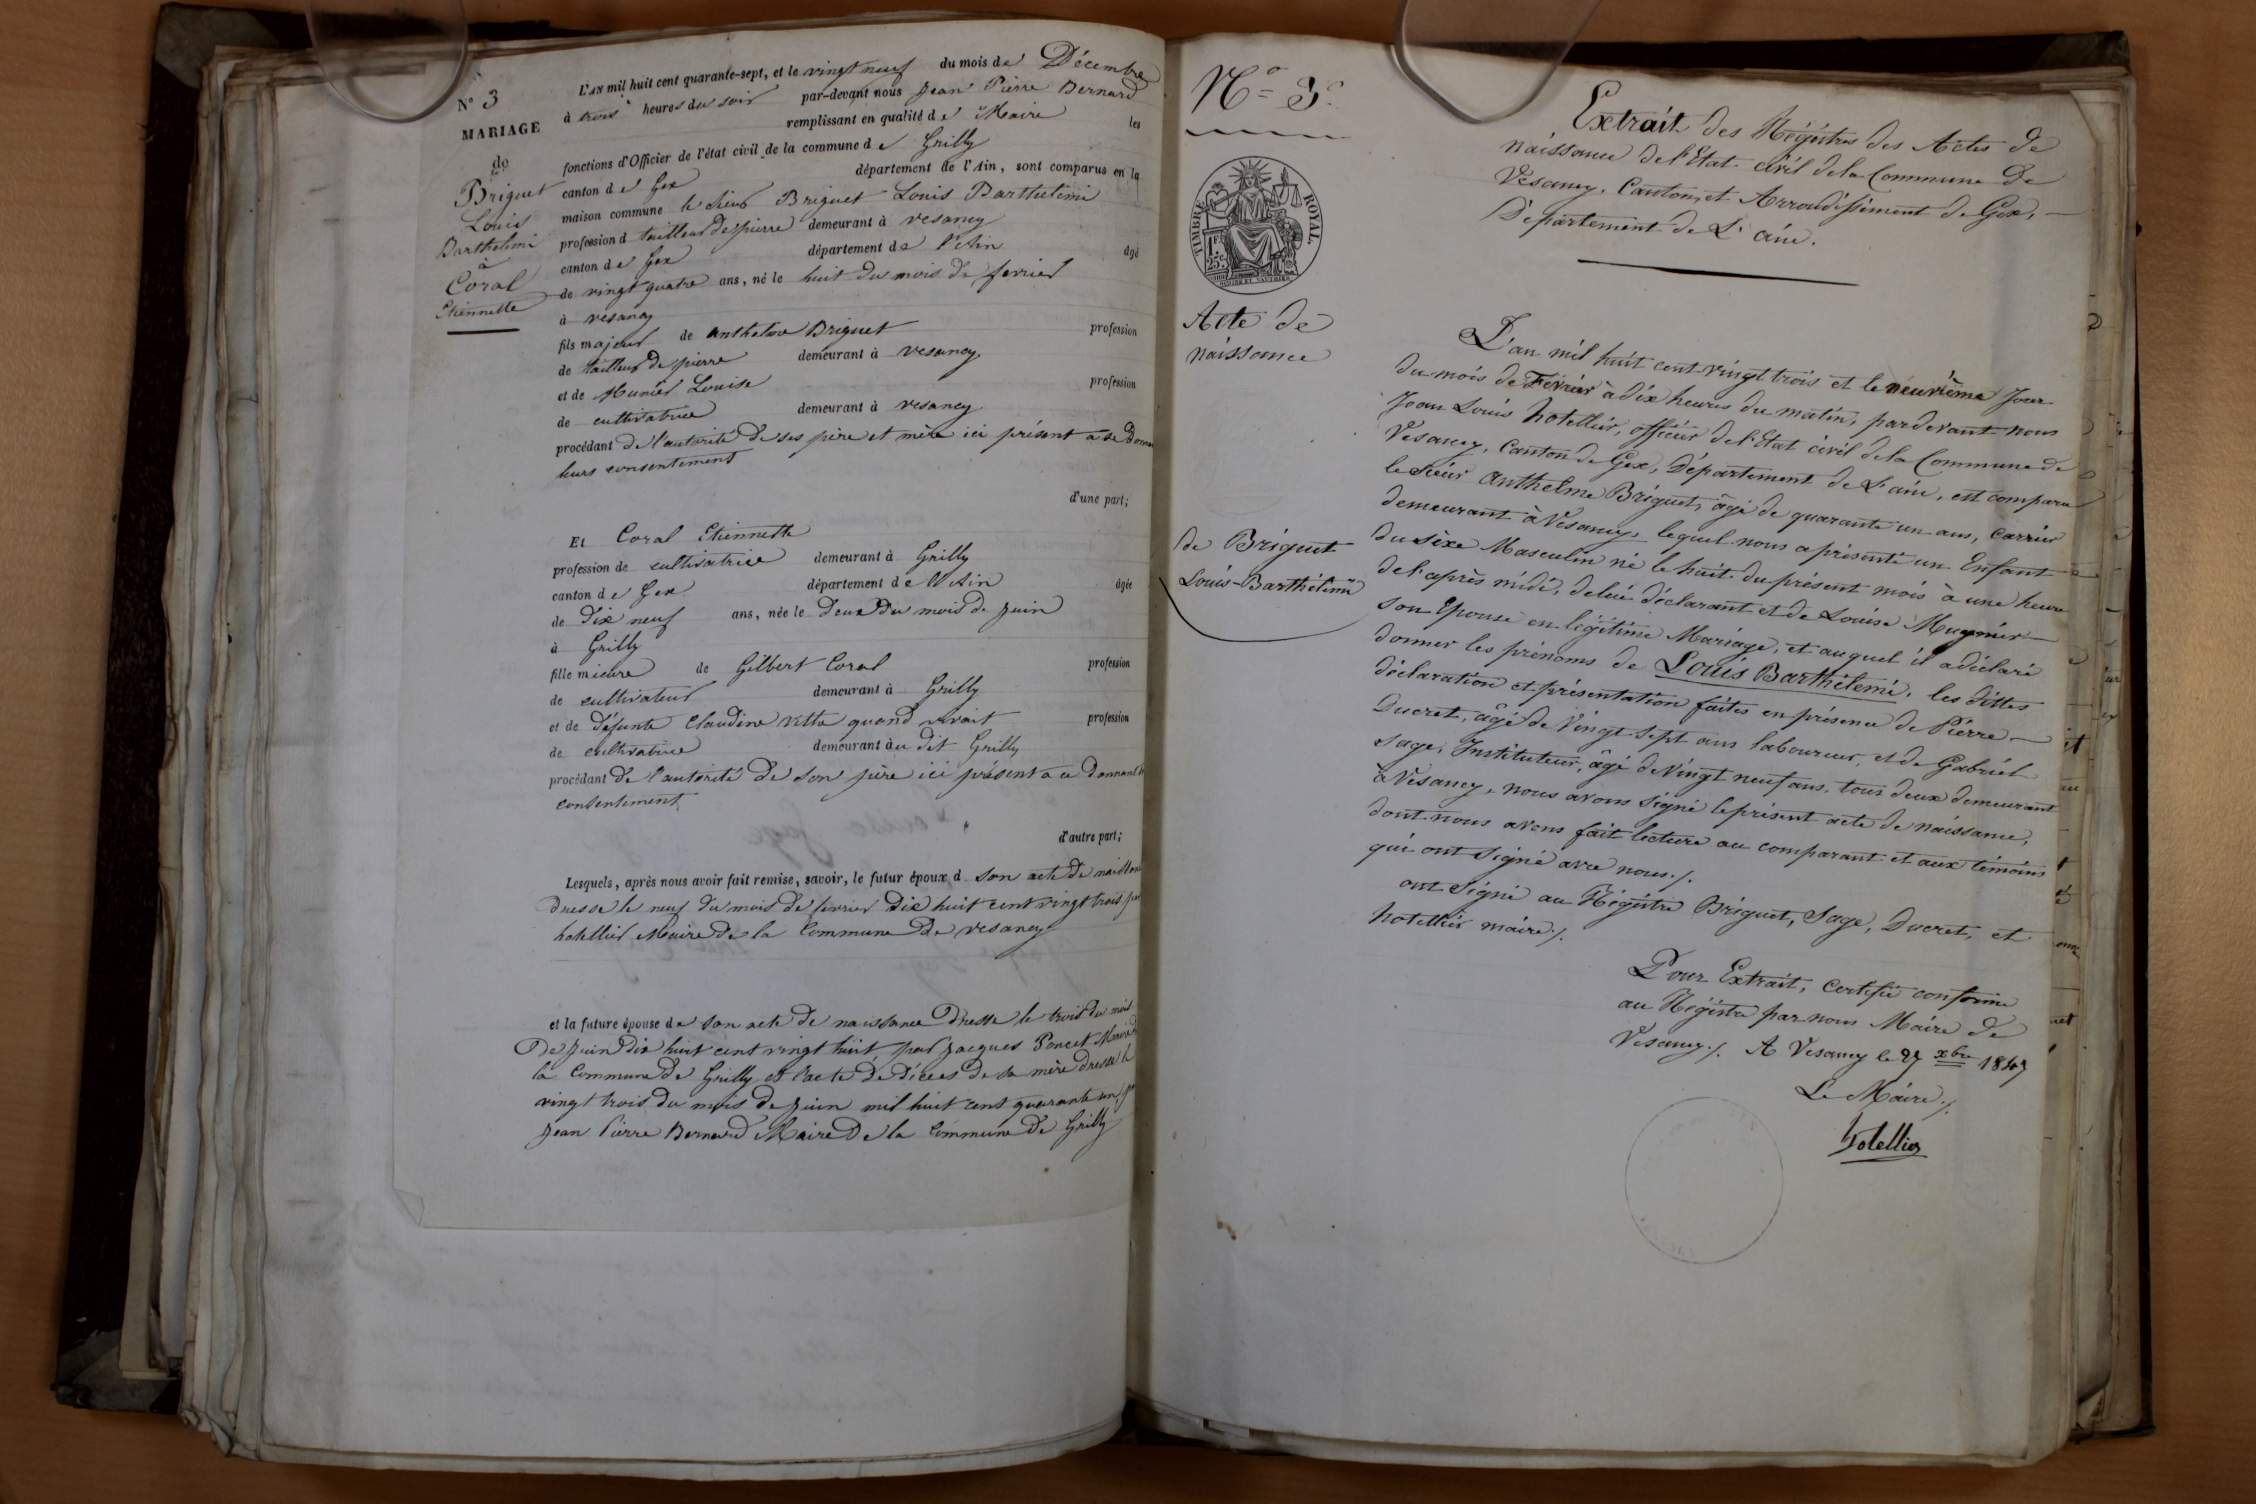 N° 3
MARIAGE
de
Briguet
Louis
Barthelmi
à
Coral
Etiennette
L'AN mil huit cent quarante-sept, et le vingt neuf du mois de Décembre
à trois heures du soir par-devant nous Jean Pierre Bernard
remplissant en qualité de Maire les
fonctions d'Officier de l'état civil de la commune de Grilly
canton de Gex département de l'Ain, sont comparus en la
maison commune le Sieur Briguet Louis Barthelemi
profession d tailleur de pierre demeurant à vesancy
canton de Gex département de l'Ain âgé
de vingt quatre ans, né le huit du mois de fevrier
à vesancy
fils majeur de anthelme Briguet profession
de tailleur de pierre demeurant à vesancy
et de Munier Louise profession
de cultivatrice demeurant à vesancy
procédant de l'autorité de ses père et mère ici présent a se
leurs consentement
d'une part;
Et Coral Etiennette
profession de cultivatrice demeurant à Grilly
canton de Gex département de l'Ain âgée
de dix neuf ans, née le deux du mois de juin
à Grilly
fille mieure de Gilbert Coral profession
de cultivateur demeurant à Grilly
et de défunte Claudine vitte quand vivait profession
de cultivatrice demeurant àu dit Grilly
procédant de l'autorité de son père ici présent a ce donnant
consentement
d'autre part;
Lesquels, après nous avoir fait remise, savoir, le futur époux d son acte de
dresse le neuf du mois de fevrier dix huit cent vingt trois par
hotellier Maire de la Commune de vesancy
et la future épouse de son acte de naissance dresse le trois du mois
De juin dix huit cent vingt huit par Jacques Poncet
la Commune de Grilly et l'acte de déces de sa mère dresse le
vingt trois du mois de juin mil huit cent quarante un
Jean Pierre Bernard Maire de la Commune de Grilly
N° 3.
TIMBRE ROYAL
1F.
25c.
Acte de
naissance
de Briguet
Louis-Barthélémi
Extrait des Régistres des Actes de
naissance de l'Etat civil de la Commune de
Vesancy, Canton et Arrondissement de Gex,
Département de L'ain.
L'an mil huit cent vingt trois et le neuvième Jour
du mois de Fevrier à dix heures du matin, pardevant nous
Jean Louis hotellier, officier de l'Etat civil de la Commune de
Vesancy, Canton de Gex, Département de L'ain, est comparu
le sieur Anthelme Briguet, âgé de quarante un ans, carrier
demeurant à Vesancy, lequel nous a présenté un Enfant
du sèxe Masculin né le huit du présent mois à une heure
de l'après midi, de lui déclarant et de Louise Mugnier
son Epouse en légitime Mariage, et auquel il a déclaré
donner les prénoms de Louis Barthélemi. les dittes
déclaration et présentation faites en présence de Pierre
Ducret, âgé de Vingt sept ans laboureur, et de Gabriel
Sage, Instituteur, âgé de Vingt neuf ans, tous deux demeurant
à Vesancy, nous avons signé le présent acte de naissance,
dont nous avons fait lecture au comparant et aux témoins
qui ont signé avec nous./.
ont signé au Régistre Briguet, Sage, Ducret, et
hotellier maire./.
Pour Extrait, certifié conforme
au Régistre par nous Maire de
Vesancy./. A Vesancy le 27 xbre 1847
Le Maire./.
hotellier